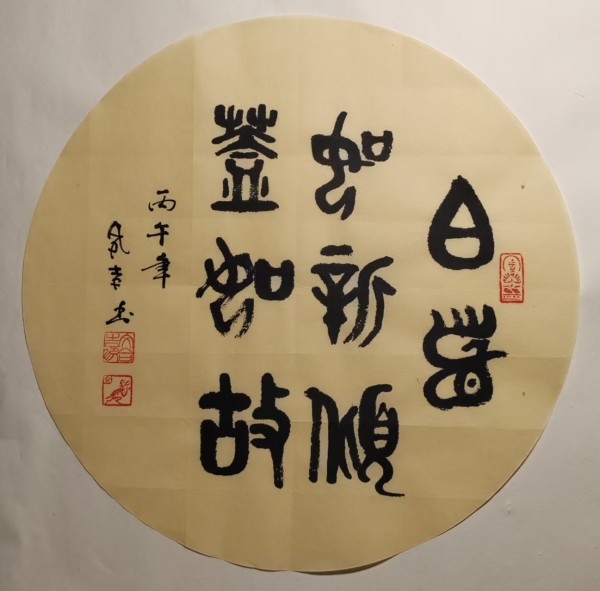 白首
如新傾
蓋如故
丙午年